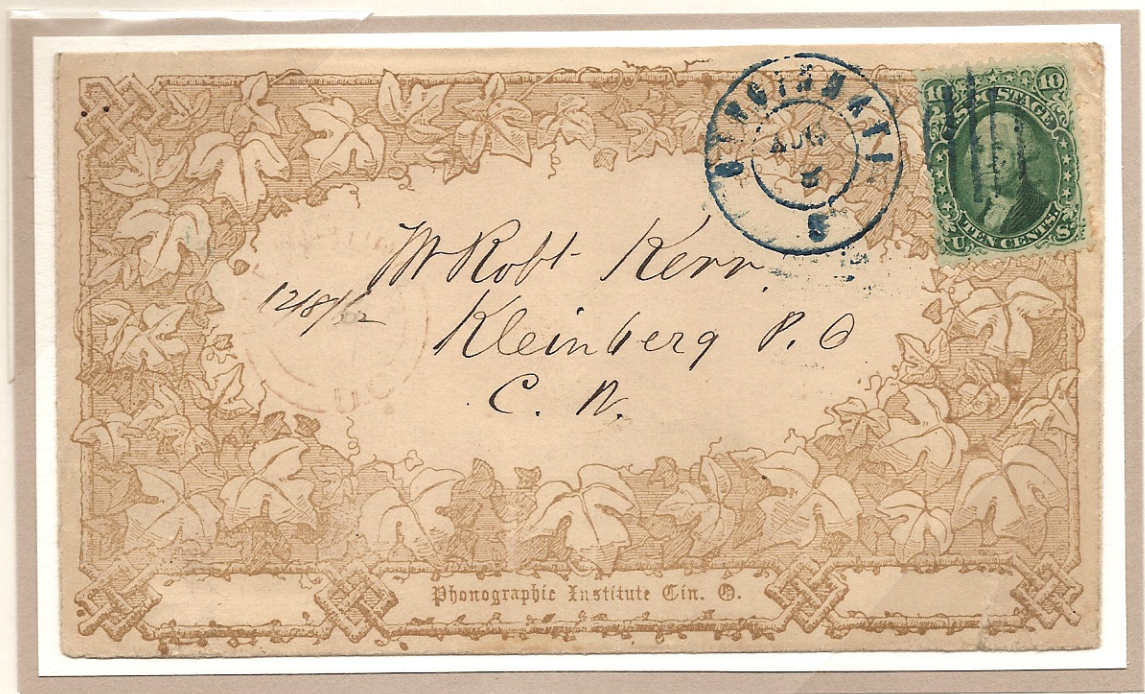 CINCINNATI
AUG
10 10
U.S. POSTAGE
U. TEN CENTS. S.
Mr Robt Kerr,
12/8/62
Kleinberg P. O
C. W.
U.C.
Phonographic Institute Cin. O.